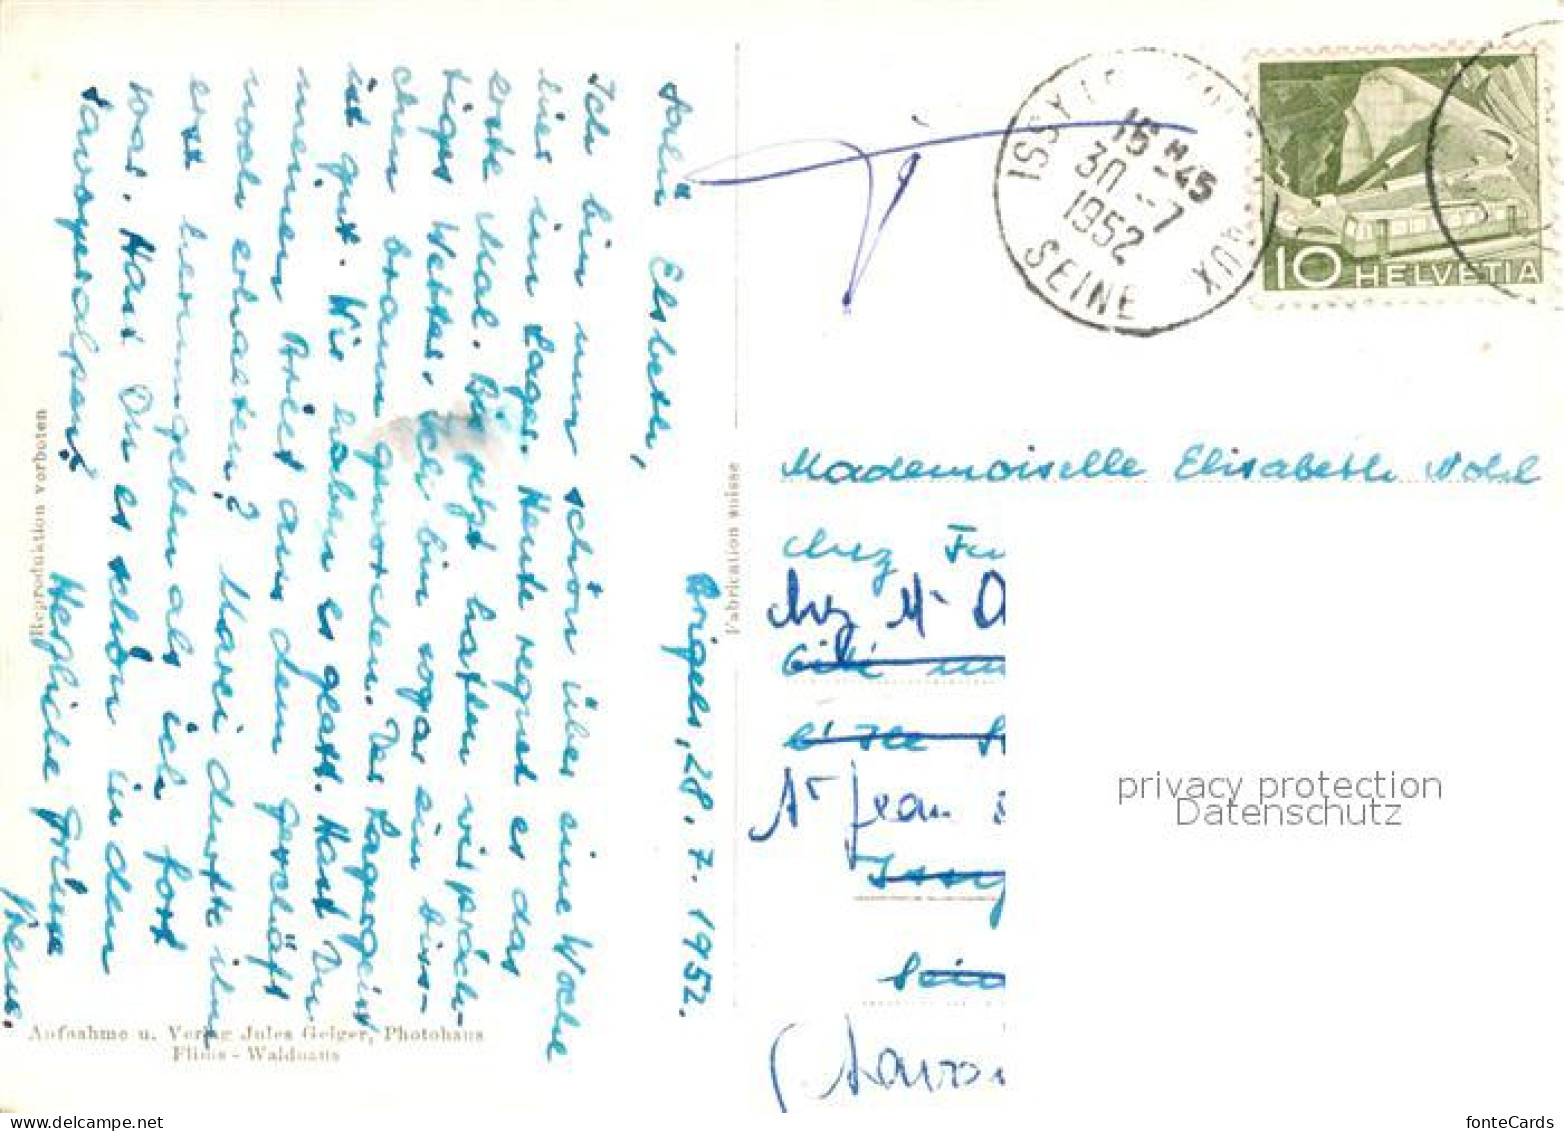 Brigels, 28. 7. 1952.
Salü Elsbeth,
Ich bin nun schön über eine Woche
hier im Lager. Heute regnet es das
erste Mal. Bis jetzt hatten wir präch-
tiges Wetter. Ich bin sogar ein biss-
chen braun geworden. Der Lagergeist
ist gut. Wir haben es glatt. Hast Du
meinen Brief aus dem Geschäft
noch erhalten? Marei durfte ihn
erst herumgeben als ich fort
war. Hast Du es schön in den
Savoyeralpen?
Herzliche Grüsse
Reproduktion verboten
Aufnahme u. Verlag Jules Geiger, Photohaus
Flims - Waldhaus
Fabrication suisse
ISSY LES MOULINEAUX
15 H45
30 -7
1952
SEINE
10 HELVETIA
Mademoiselle Elisabeth
chez
chez M-
St Jean
Issy
privacy protection
Datenschutz
fonteCards